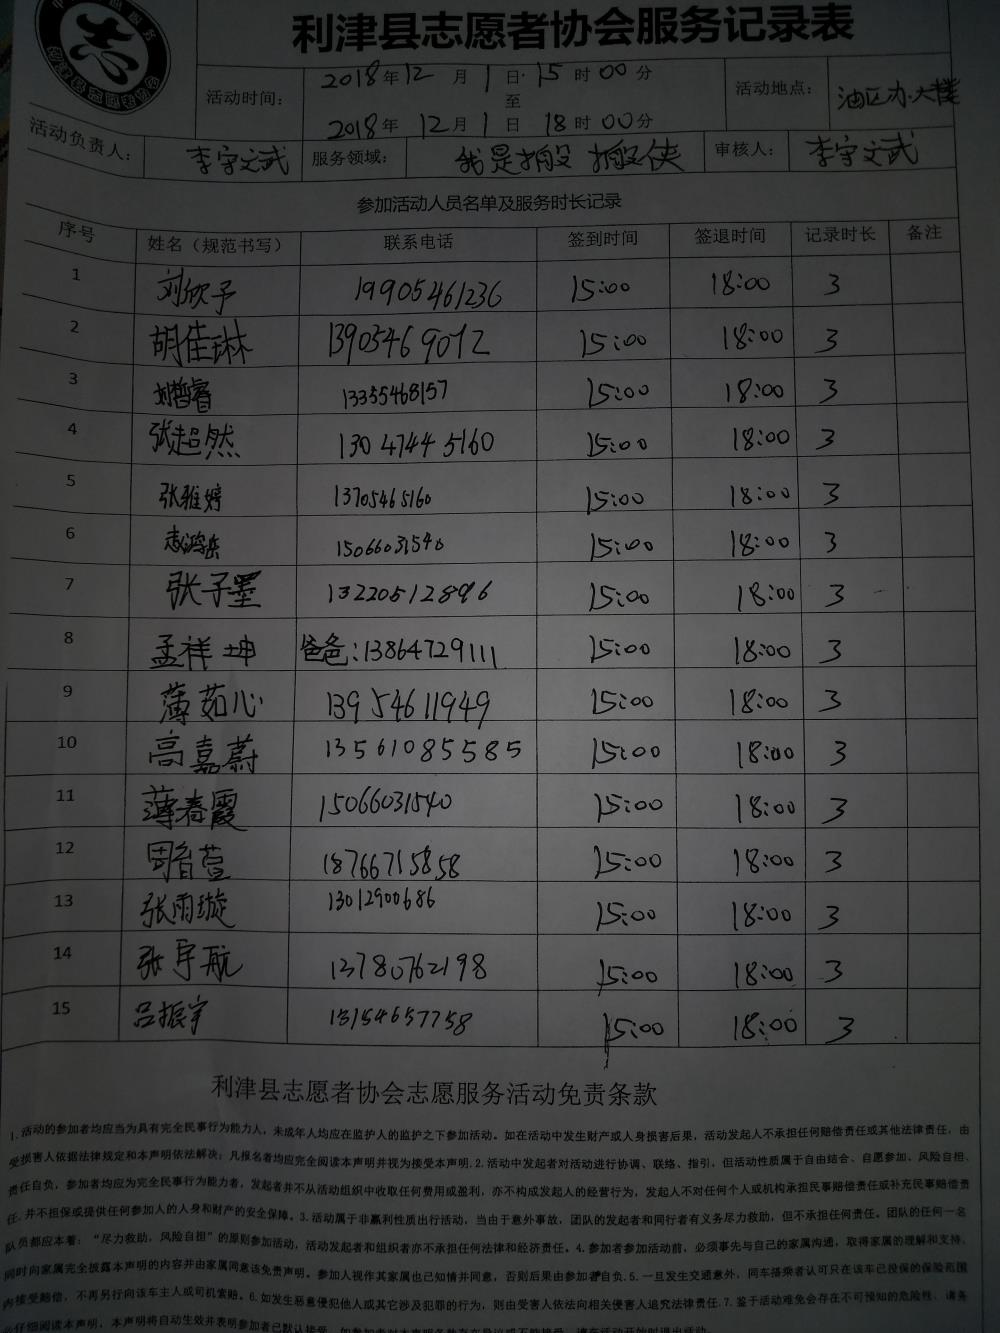 利津县志愿者协会服务记录表
活动时间： 2018年12月1日15时00分
至
2018年12月1日18时00分
活动地点： 油区办大楼
活动负责人： 李宇文武 服务领域： 我是搬搬侠 审核人： 李宇文武
参加活动人员名单及服务时长记录
序号 姓名（规范书写） 联系电话 签到时间 签退时间 记录时长 备注
1 刘欣予 19905461236 15:00 18:00 3
2 胡佳琳 13905469072 15:00 18:00 3
3 刘哲睿 13355468157 15:00 18:00 3
4 张超然 13047445160 15:00 18:00 3
5 张雅婷 13705465160 15:00 18:00 3
6 15066031540 15:00 18:00 3
7 张子墨 13220512896 15:00 18:00 3
8 孟祥坤 爸爸：13864729111 15:00 18:00 3
9 薄茹心 13954611949 15:00 18:00 3
10 高嘉蔚 13561085585 15:00 18:00 3
11 薄春霞 15066031540 15:00 18:00 3
12 18766715858 15:00 18:00 3
13 张雨璇 13012900686 15:00 18:00 3
14 张宇航 13780762198 15:00 18:00 3
15 吕振宇 13154657758 15:00 18:00 3
利津县志愿者协会志愿服务活动免责条款
1.活动的参加者均应当为具有完全民事行为能力人，未成年人均应在监护人的监护之下参加活动。如在活动中发生财产或人身损害后果，活动发起人不承担任何赔偿责任或其他法律责任，由
受损害人依据法律规定和本声明依法解决；凡报名者均应完全阅读本声明并视为接受本声明.2.活动中发起者对活动进行协调、联络、指引，但活动性质属于自由结合、自愿参加、风险自担、
责任自负，参加者均应为完全民事行为能力者，发起者并不从活动组织中收取任何费用或盈利，亦不构成发起人的经营行为，发起人不对任何个人或机构承担民事赔偿责任或补充民事赔偿责
任，并不担保或提供任何参加人的人身和财产的安全保障。3.活动属于非赢利性质出行活动，当由于意外事故，团队的发起者和同行者有义务尽力救助，但不承担任何责任。团队的任何一名
队员都应本着：“尽力救助，风险自担”的原则参加活动，活动发起者和组织者亦不承担任何法律和经济责任。4.参加者参加活动前，必须事先与自己的家属沟通，取得家属的理解和支持、
同时向家属完全披露本声明的内容并由家属同意该免责声明。参加人视作其家属也已知情并同意，否则后果由参加者自负.5.一旦发生交通意外，同车搭乘者认可只在该车已投保的保险范围
内接受赔偿，不再另行向该车主人或司机索赔。6.如发生恶意侵犯他人或其它涉及犯罪的行为，则由受害人依法向相关侵害人追究法律责任.7.鉴于活动难免会存在不可预知的危险性、请务
必仔细阅读本声明，本声明将自动生效并表明参加者已默认接受